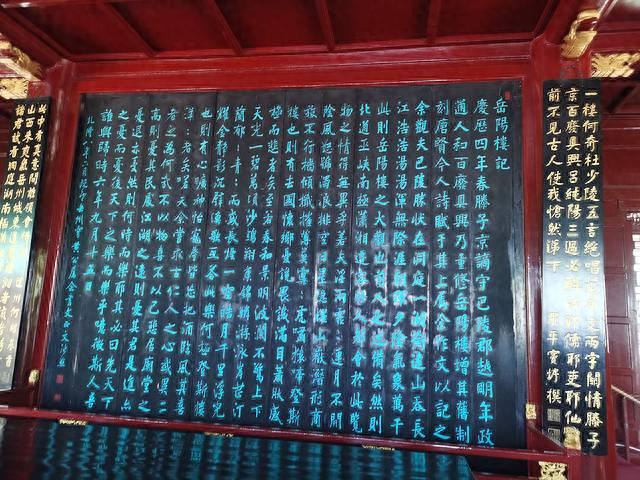 一樓何奇杜少陵五言絕唱范希文兩字關情滕子
京百廢具興呂純陽三過必醉詩耶儒耶吏耶仙耶
前不見古人使我愴然涕下
竇垿撰
岳陽樓記
慶歷四年春滕子京謫守巴陵郡越明年政
通人和百廢具興乃重修岳陽樓增其舊制
刻唐賢今人詩賦于其上屬余作文以記之
余觀夫巴陵勝狀在洞庭一湖銜遠山吞長
江浩浩湯湯渾無際涯朝暉夕陰氣象萬千
此則岳陽樓之大觀也前人之述備矣然則
北通巫峽南極瀟湘遷客騷人多會於此覽
物之情得無異乎若夫霪雨霏霏連月不開
陰風怒號濁浪排空日星隱耀山岳潛形商
旅不行檣傾楫摧薄暮冥冥虎嘯猿啼登斯
樓也則有去國懷鄉憂讒畏譏滿目蕭然感
極而悲者矣至若春和景明波瀾不驚上下
天光一碧萬頃沙鷗翔集錦鱗游泳岸芷汀
蘭郁郁青青而或長煙一空皓月千里浮光
耀金靜影沉璧漁歌互答此樂何極登斯樓
也則有心曠神怡寵辱皆忘把酒臨風其喜
洋洋者矣嗟夫予嘗求古仁人之心或異二
者之為何哉不以物喜不以己悲居廟堂之
高則憂其民處江湖之遠則憂其君是進亦
憂退亦憂然則何時而樂耶其必曰先天下
之憂而憂後天下之樂而樂乎噫微斯人吾
誰與歸時六年九月十五日
諸君試看洞庭湖南極瀟湘
山西來爽氣岳州城東道巖疆
此中有真意問誰領會得